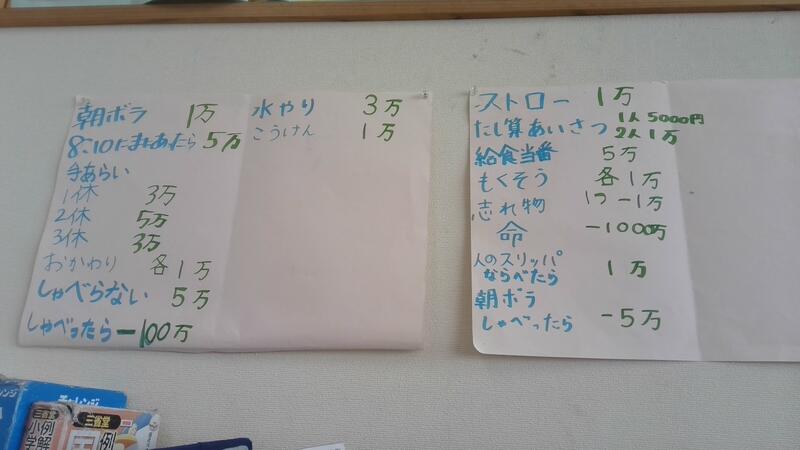 朝ボラ 1万
8:10にまにあったら 5万
手あらい
1休 3万
2休 5万
3休 3万
おかわり 各1万
しゃべらない 5万
しゃべったら -100万
水やり 3万
こうけん 1万
ストロー 1万
たし算あいさつ 1人5000円
2人1万
給食当番 5万
もくそう 各1万
忘れ物 1つ-1万
命 -1000万
人のスリッパ
ならべたら 1万
朝ボラ
しゃべったら -5万
チャレンジ
三省堂
小学
例解
三省堂
例